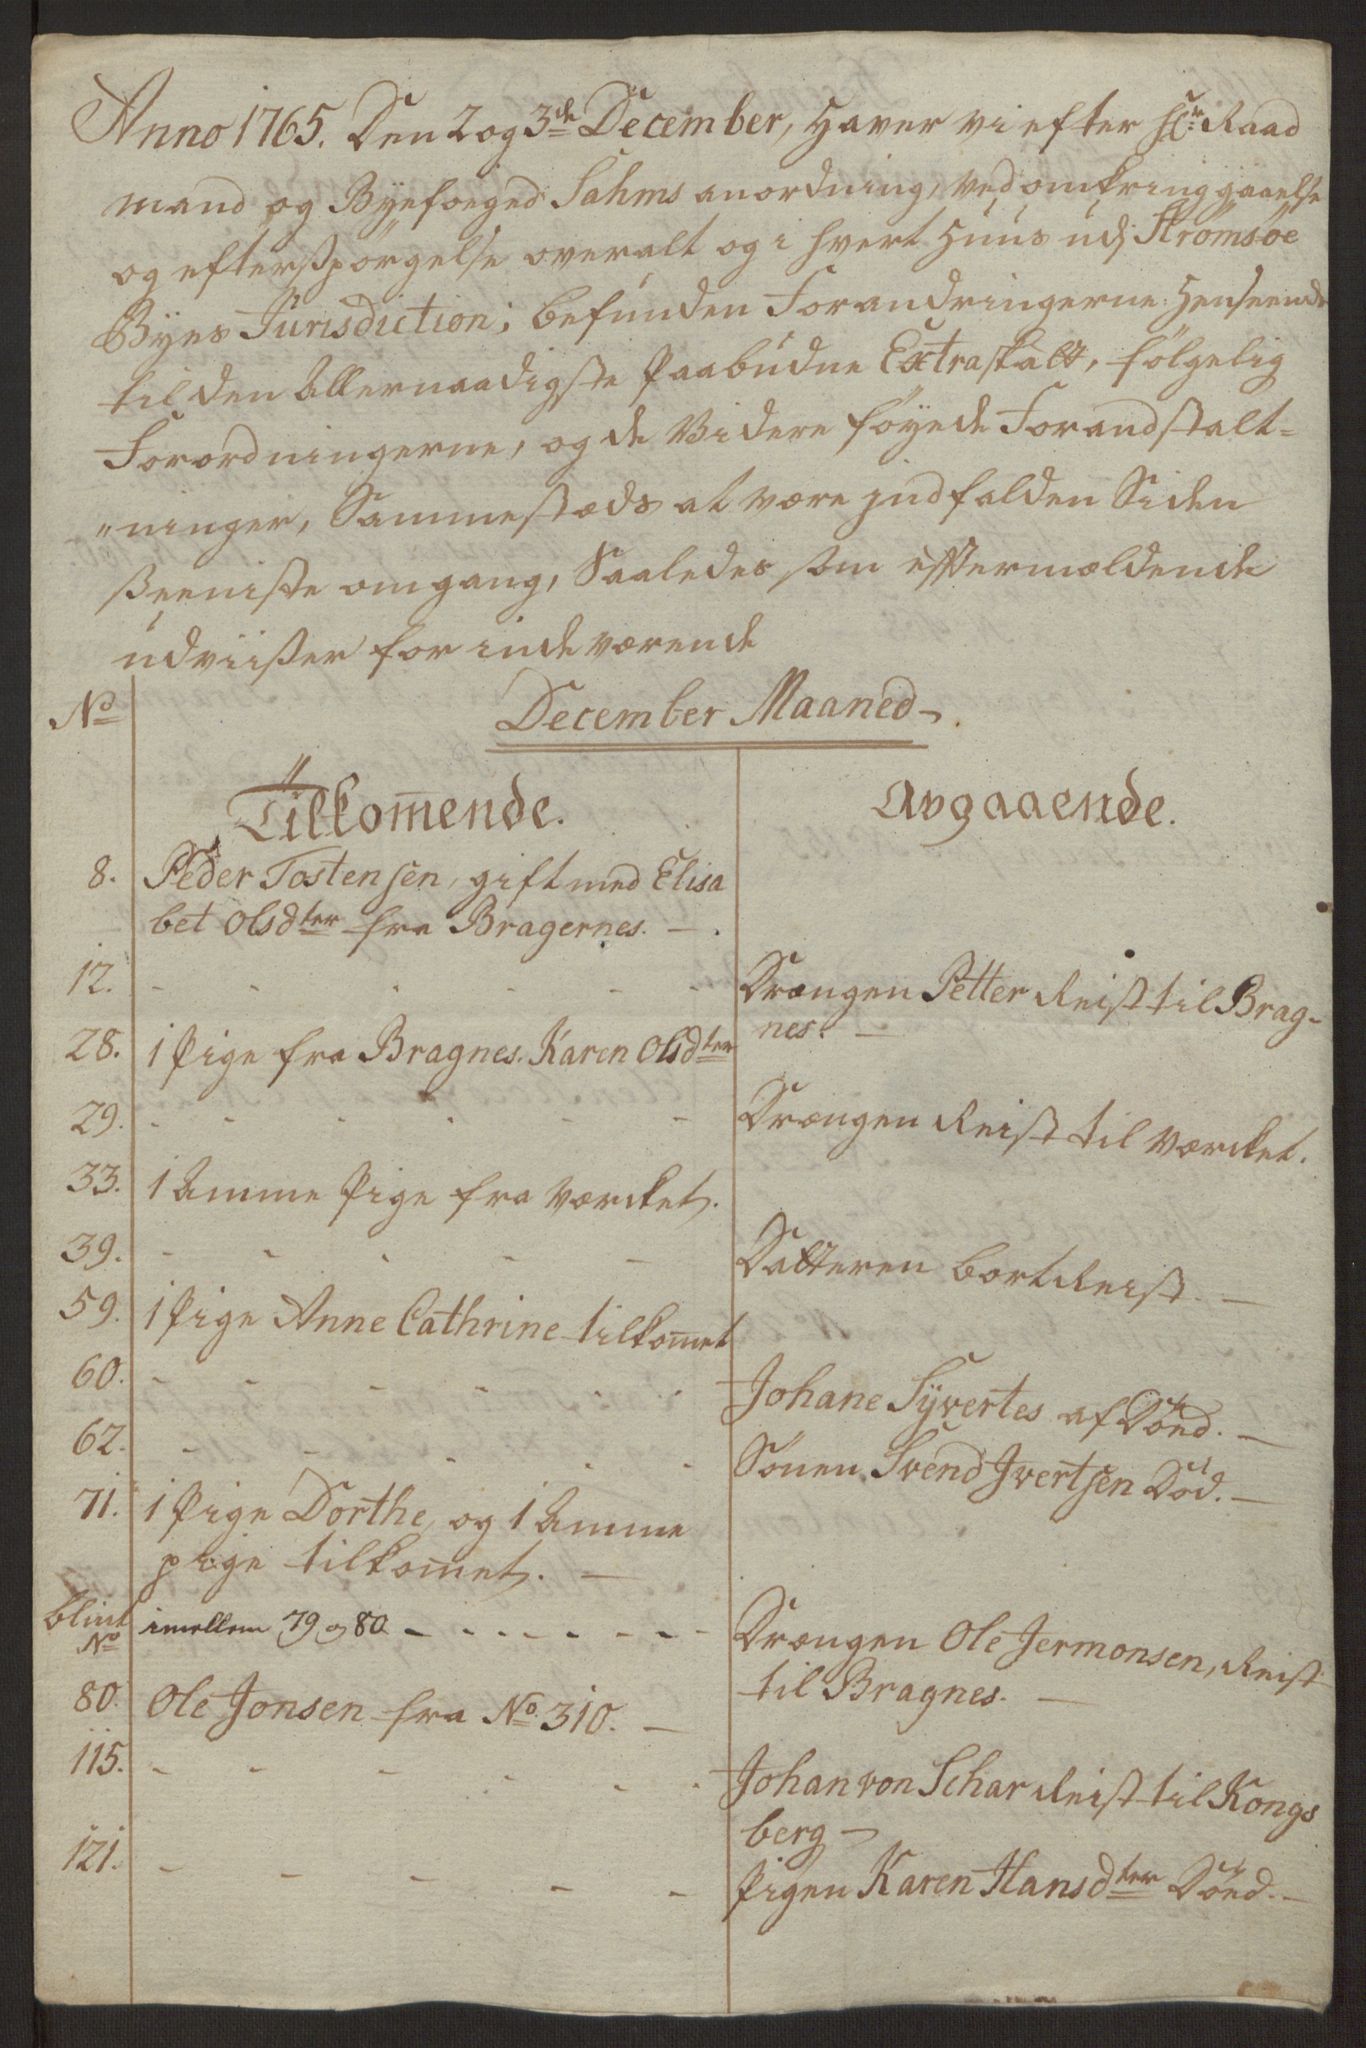 Anno 1765. Den 2 og 3de December, Haver vi efter Hr. Raad
mand og Byefoeged Sahms anordning, ved omkringgaaelse
og efterspørgelse overalt og i hvert Huus udj Strømsøe
Byes Jurisdiction; befunden Forandringerne Henseende
til den Allernaadigste Paabudne Extraskatt, følgelig
Forordningerne, og de Videre føyede Forandstalt=
"ninger, Sammestæds at være jndfalden Siden
Seeniste omgang, Saaledes som eftermældende
udviiser for indeværende
No
December Maaned
Tilkom̄ende.
Avgaaende.
8. Peder Tostensen, gift med Elisa
bet Olsdter fra Bragernes. -
12. - - - - - - Drængen Petter Reist til Brag-
nes. -
28. 1 Pige fra Bragnes. Karen Olsdter
29. - - - - - - Drængen Reist til Værcket.
33. 1 Amme Pige fra Værcket.
39. - - - - - Datteren bortReist. -
59. 1 Pige Anne Cathrine tilkom̄et
60. - - - - - - Johane Syvertes af Döed. -
62. - - - - - Sönen Svend Jvertsen Död. -
71. 1 Pige Dorthe, og 1 Amme
pige tilkom̄et. -
blint
No
imellem 79 og 80 - - - - - - - Drængen Ole Jermonsen, Reist
til Bragnes. -
80. Ole Jonsen fra No. 310. -
115. - - - - - - Johan von Schar Reist til Kongs
berg -
121. - - - - - Pigen Karen Hansdter Döed. -